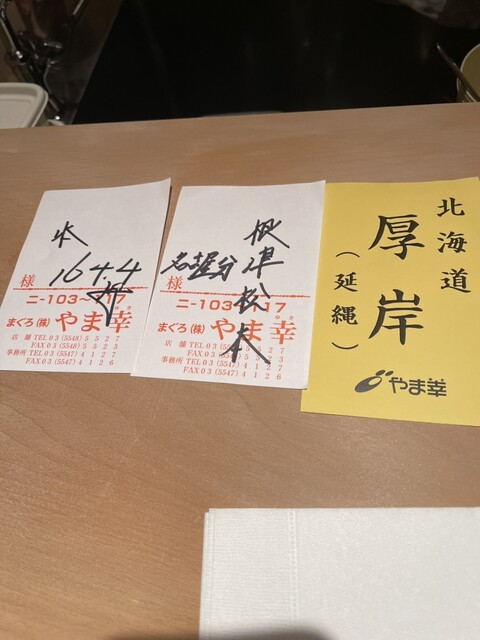 164.4
様
ニ-103-
17
まぐろ(株) やま幸
店舗 TEL 03 (5548) 5527
FAX 03 (5548) 5523
事務所 TEL 03 (5547) 4127
FAX 03 (5547) 4126
根津松本
名古屋分
様
ニ-103-
17
まぐろ(株) やま幸
店舗 TEL 03
FAX 03
事務所 TEL 03 (5547) 4127
FAX 03 (5547) 4126
北海道
厚岸
(延縄)
やま幸